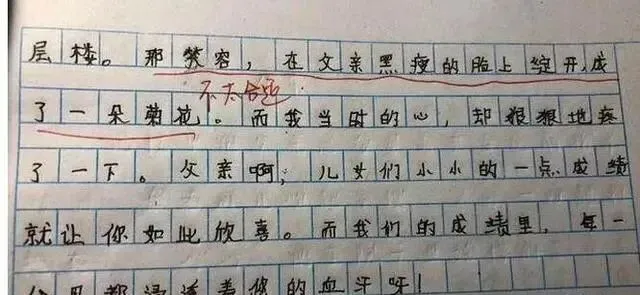 层楼。那笑容，在父亲黑瘦的脸上绽开，成
不太合适
了一朵菊花。而我当时的心，却狠狠地疼
了一下。父亲啊，儿女们小小的一点成绩
就让你如此欣喜。而我们的成绩里，每一
都浸透着您的血汗呀！